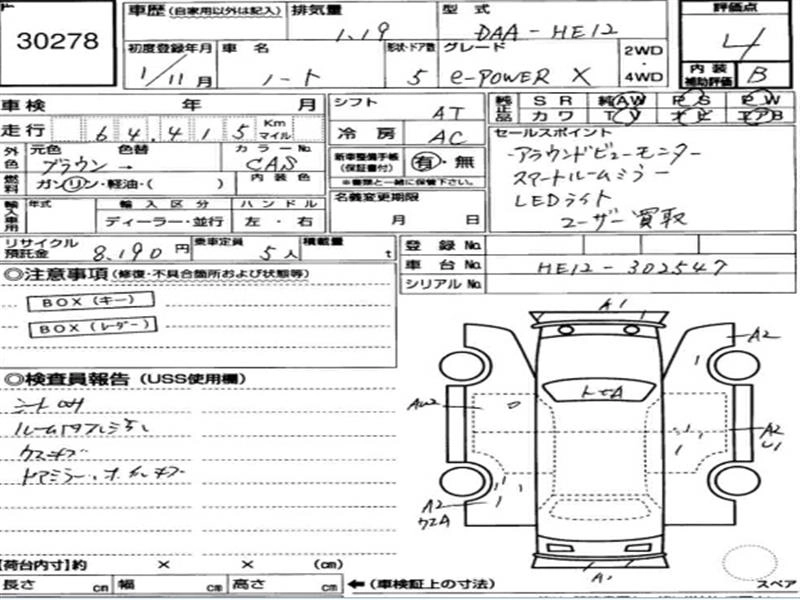 30278
車歴 (自家用以外は記入) 排気量 型式 評価点
1.19 DAA-HE12 4
初度登録年月 車名 形状・ドア数 グレード 2WD・4WD
1/11月 ノート 5 e-POWER X
内装補助評価 B
車検 年 月 シフト AT 純正品 SR 純AW PS PW
カワ TV ナビ エアB
走行 64,415 Km マイル 冷房 AC
外色 元色 色替 カラーNo. 新車整備手帳(保証書付) 有・無
ブラウン → CAS
※書類と一緒に保管下さい。
燃料 ガソリン・軽油・( ) 内装色
セールスポイント
・アラウンドビューモニター
スマートルームミラー
LEDライト
ユーザー買取
輸入車用 年式 輸入区分 ハンドル 名義変更期限
ディーラー・並行 左・右 月 日
リサイクル預託金 8,190 円 乗車定員 5人 積載量 t
登録No.
車台No. HE12-302547
シリアルNo.
◎注意事項 (修復・不具合箇所および状態等)
BOX(キー)
BOX(レーダー)
◎検査員報告 (USS使用欄)
A1
A2
A2
A2
ウスA
A1
【荷台内寸】約 × × (cm)
長さ cm 幅 cm 高さ cm ←(車検証上の寸法)
スペア